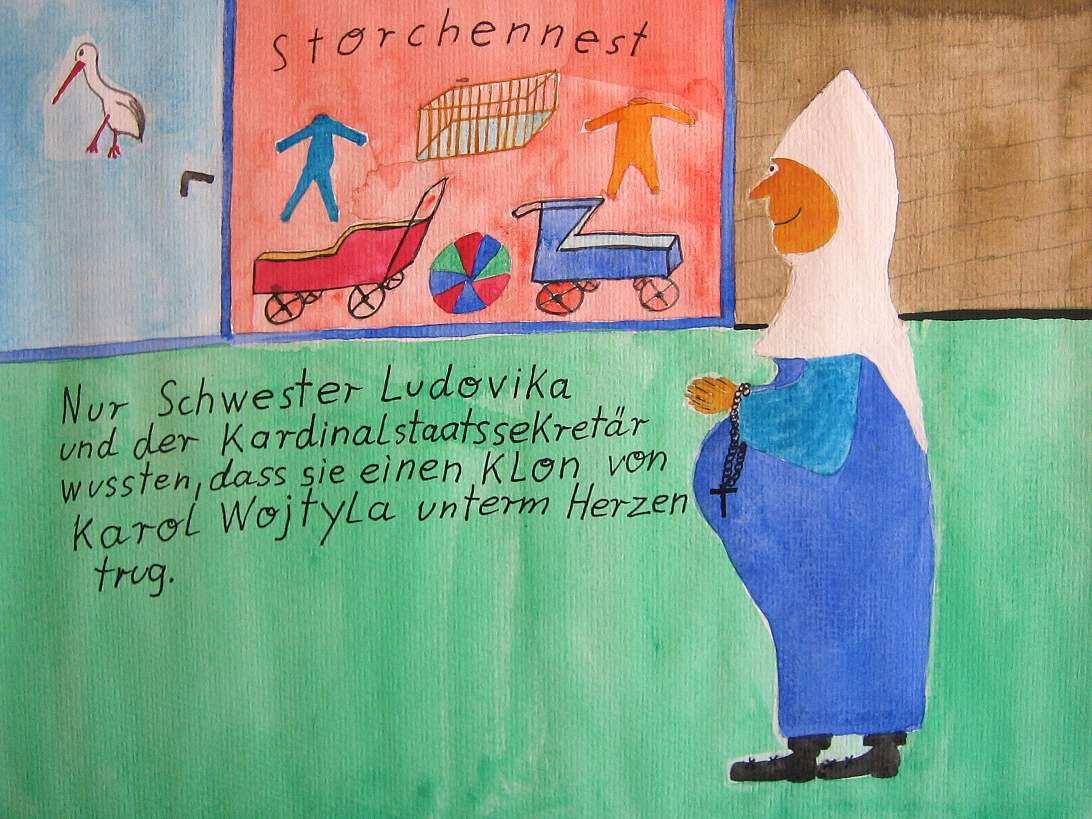 Storchennest
Nur Schwester Ludovika
und der Kardinalstaatssekretär
wussten, dass sie einen Klon von
Karol Wojtyla unterm Herzen
trug.